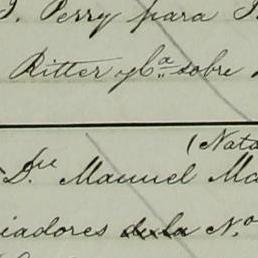 J. Perry para
Ritter y Ca. sobre
(Nata
D. Manuel Ma
iadores de la N.o